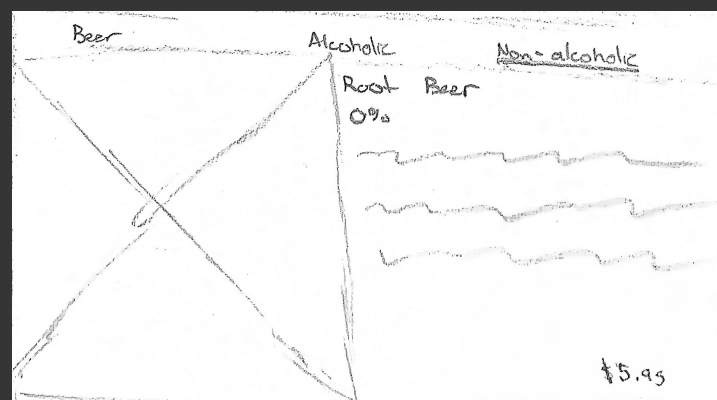 Beer Alcoholic Non-alcoholic
Root Beer
0%
$5.95